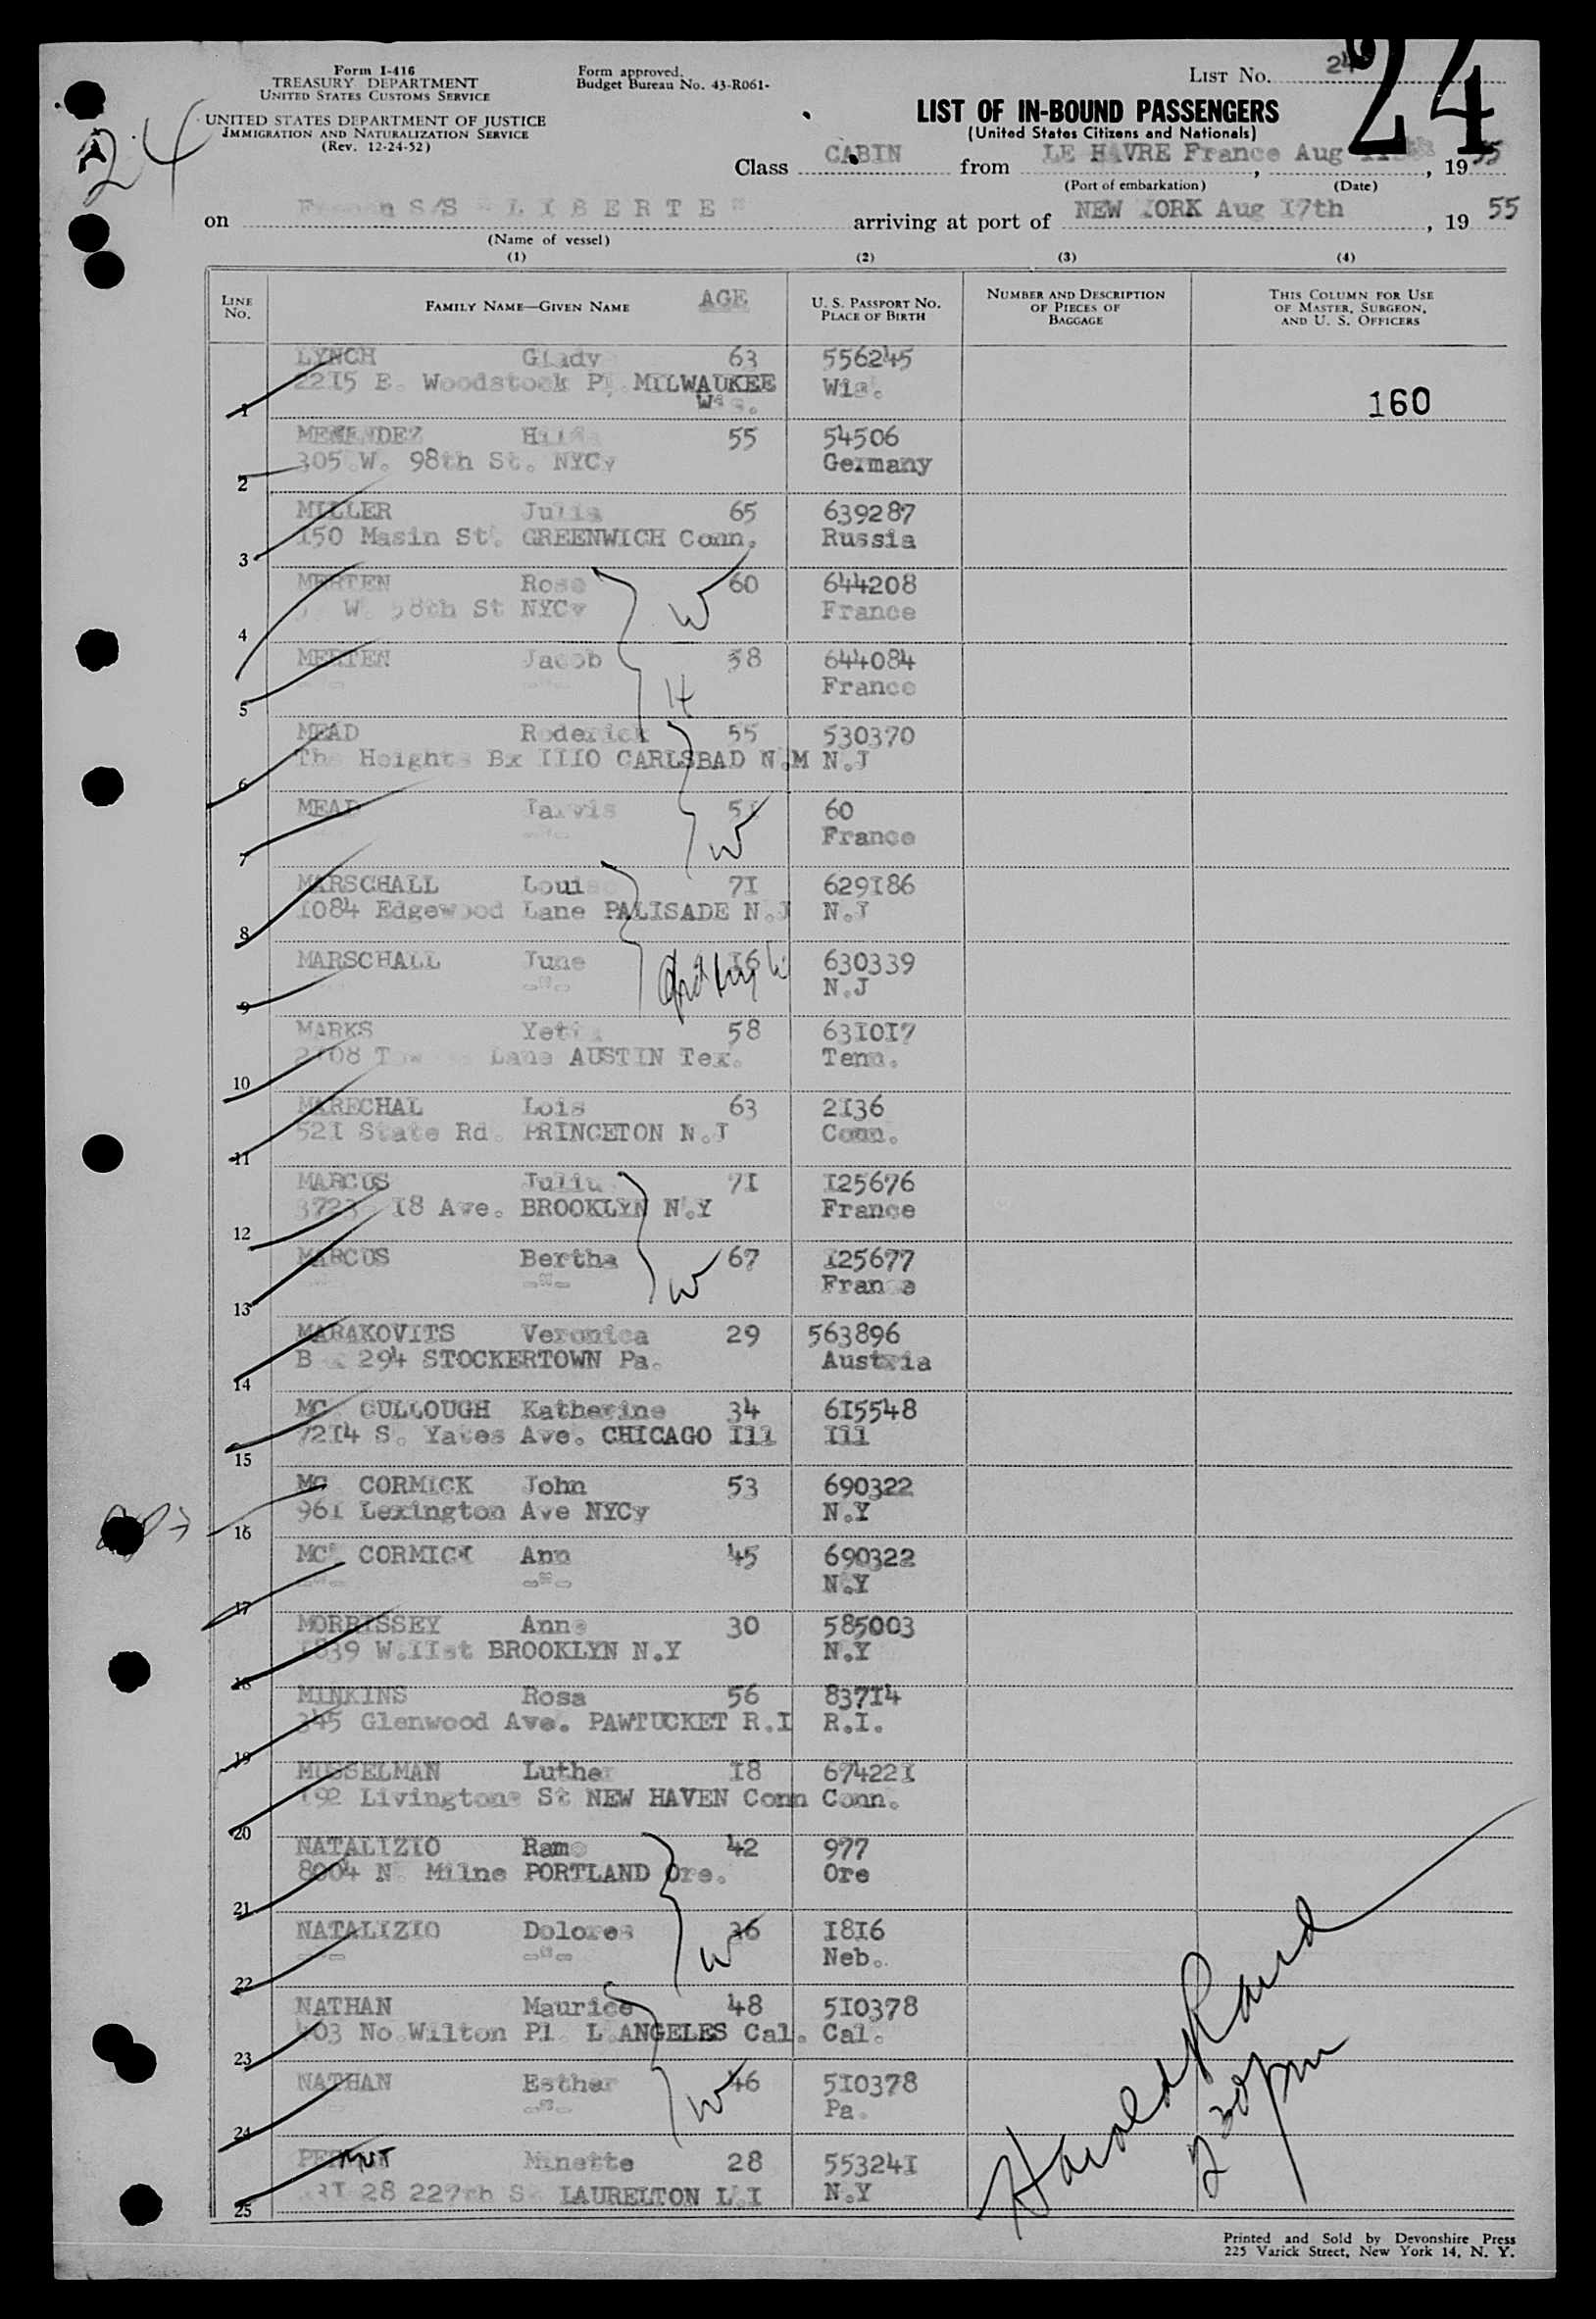 Form I-416
TREASURY DEPARTMENT
UNITED STATES CUSTOMS SERVICE
UNITED STATES DEPARTMENT OF JUSTICE
IMMIGRATION AND NATURALIZATION SERVICE
(Rev. 12-24-52)
Form approved.
Budget Bureau No. 43-R061-
LIST No. 24
24
24
LIST OF IN-BOUND PASSENGERS
(United States Citizens and Nationals)
Class CABIN from LE HAVRE France Aug , 19 55
(Port of embarkation) (Date)
on S/S "LIBERTE" arriving at port of NEW YORK Aug 17th , 19 55
(Name of vessel)
(1) (2) (3) (4)
LINE No. FAMILY NAME—GIVEN NAME AGE U. S. PASSPORT No. PLACE OF BIRTH NUMBER AND DESCRIPTION OF PIECES OF BAGGAGE THIS COLUMN FOR USE OF MASTER, SURGEON, AND U. S. OFFICERS
1 LYNCH Glady 63 556245
2215 E. Woodstock Pl. MILWAUKEE Wis.
Wis. 160
2 MENENDEZ Hilda 55 54506
305 W. 98th St. NYCy Germany
3 MILLER Julia 65 639287
150 Masin St. GREENWICH Conn. Russia
4 MERTEN Rose 60 644208
W. 58th St NYCy France
W
5 MERTEN Jacob 58 644084
-"- -"- France
H
6 MEAD Roderick 55 530370
The Heights Bx III0 CARLSBAD N.M N.J
7 MEAD Jarvis 51 60
-"- France
W
8 MARSCHALL Louise 71 629186
1084 Edgewood Lane PALISADE N.J N.J
9 MARSCHALL June 16 630339
-"- N.J
10 MARKS Yetta 58 631017
Lane AUSTIN Tex. Tenn.
11 MARECHAL Lois 63 2136
521 State Rd. PRINCETON N.J Conn.
12 MARCUS Juliu 71 125676
18 Ave. BROOKLYN N.Y France
13 MARCUS Bertha 67 125677
-"- France
W
14 MARAKOVITS Veronica 29 563896
B x 294 STOCKERTOWN Pa. Austria
15 MC CULLOUGH Katherine 34 615548
7214 S. Yates Ave. CHICAGO Ill Ill
16 MC CORMICK John 53 690322
961 Lexington Ave NYCy N.Y
17 MC CORMICK Ann 45 690322
-"- -"- N.Y
18 MORRISSEY Anne 30 585003
1839 W.IIst BROOKLYN N.Y N.Y
19 MINKINS Rosa 56 83714
345 Glenwood Ave. PAWTUCKET R.I R.I.
20 MUSSELMAN Luther 18 674221
192 Livingtone St NEW HAVEN Conn Conn.
21 NATALIZIO Ramo 42 977
8004 N. Milne PORTLAND Ore. Ore
22 NATALIZIO Dolores 36 1816
-"- -"- Neb.
W
23 NATHAN Maurice 48 510378
403 No.Wilton Pl. L.ANGELES Cal. Cal.
24 NATHAN Esther 46 510378
-"- Pa.
W
25 Minette 28 553241
28 227th St LAURELTON L.I N.Y
Harold Raird
2 30 pm
Printed and Sold by Devonshire Press
225 Varick Street, New York 14, N. Y.